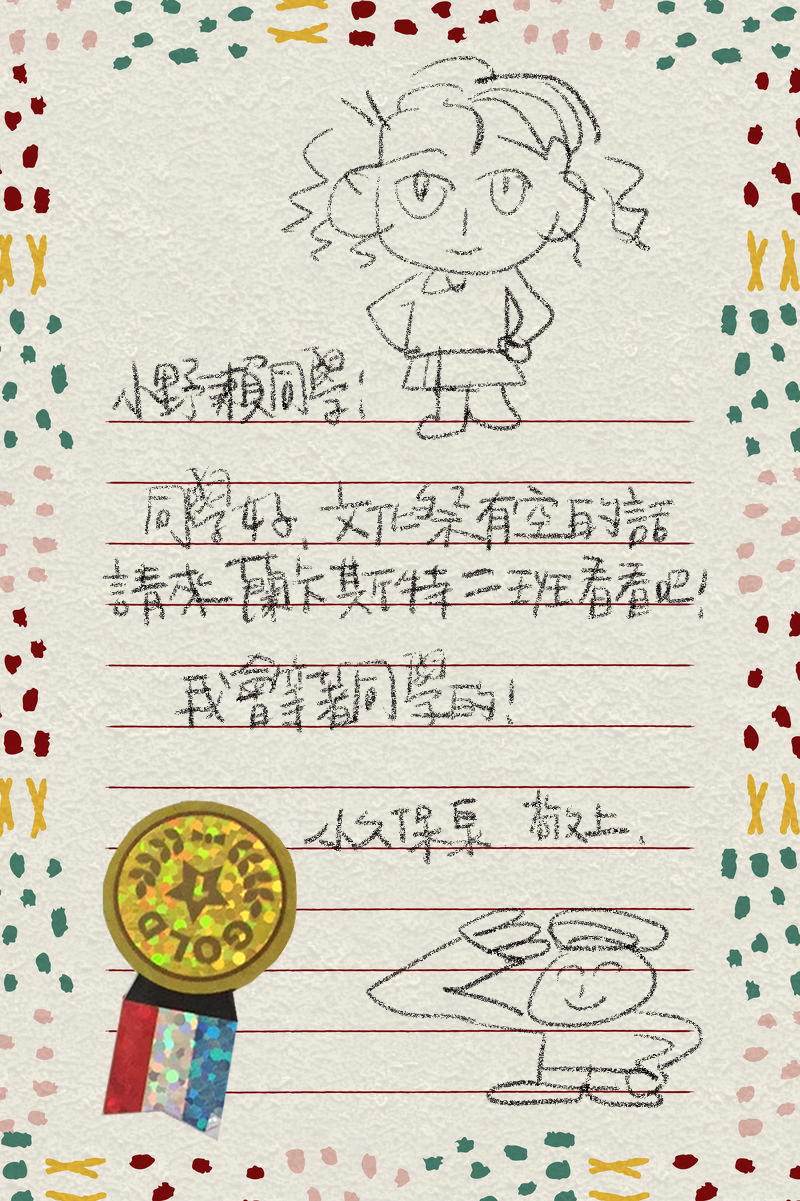 小野賴同學!
同學好,文化祭有空的話
請來蘭卡斯特二班看看吧!
我會等著同學的!
小久保杲 敬上.
GOLD